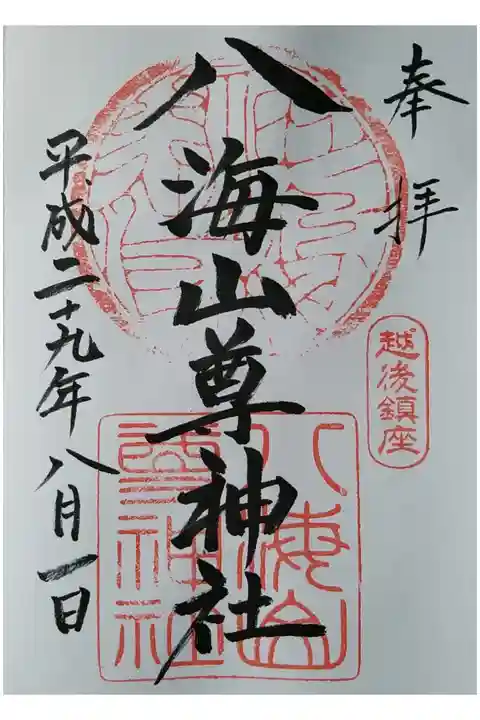 奉拝
越後鎮座
八海山尊神社
八海山
尊神社
平成二十九年八月一日